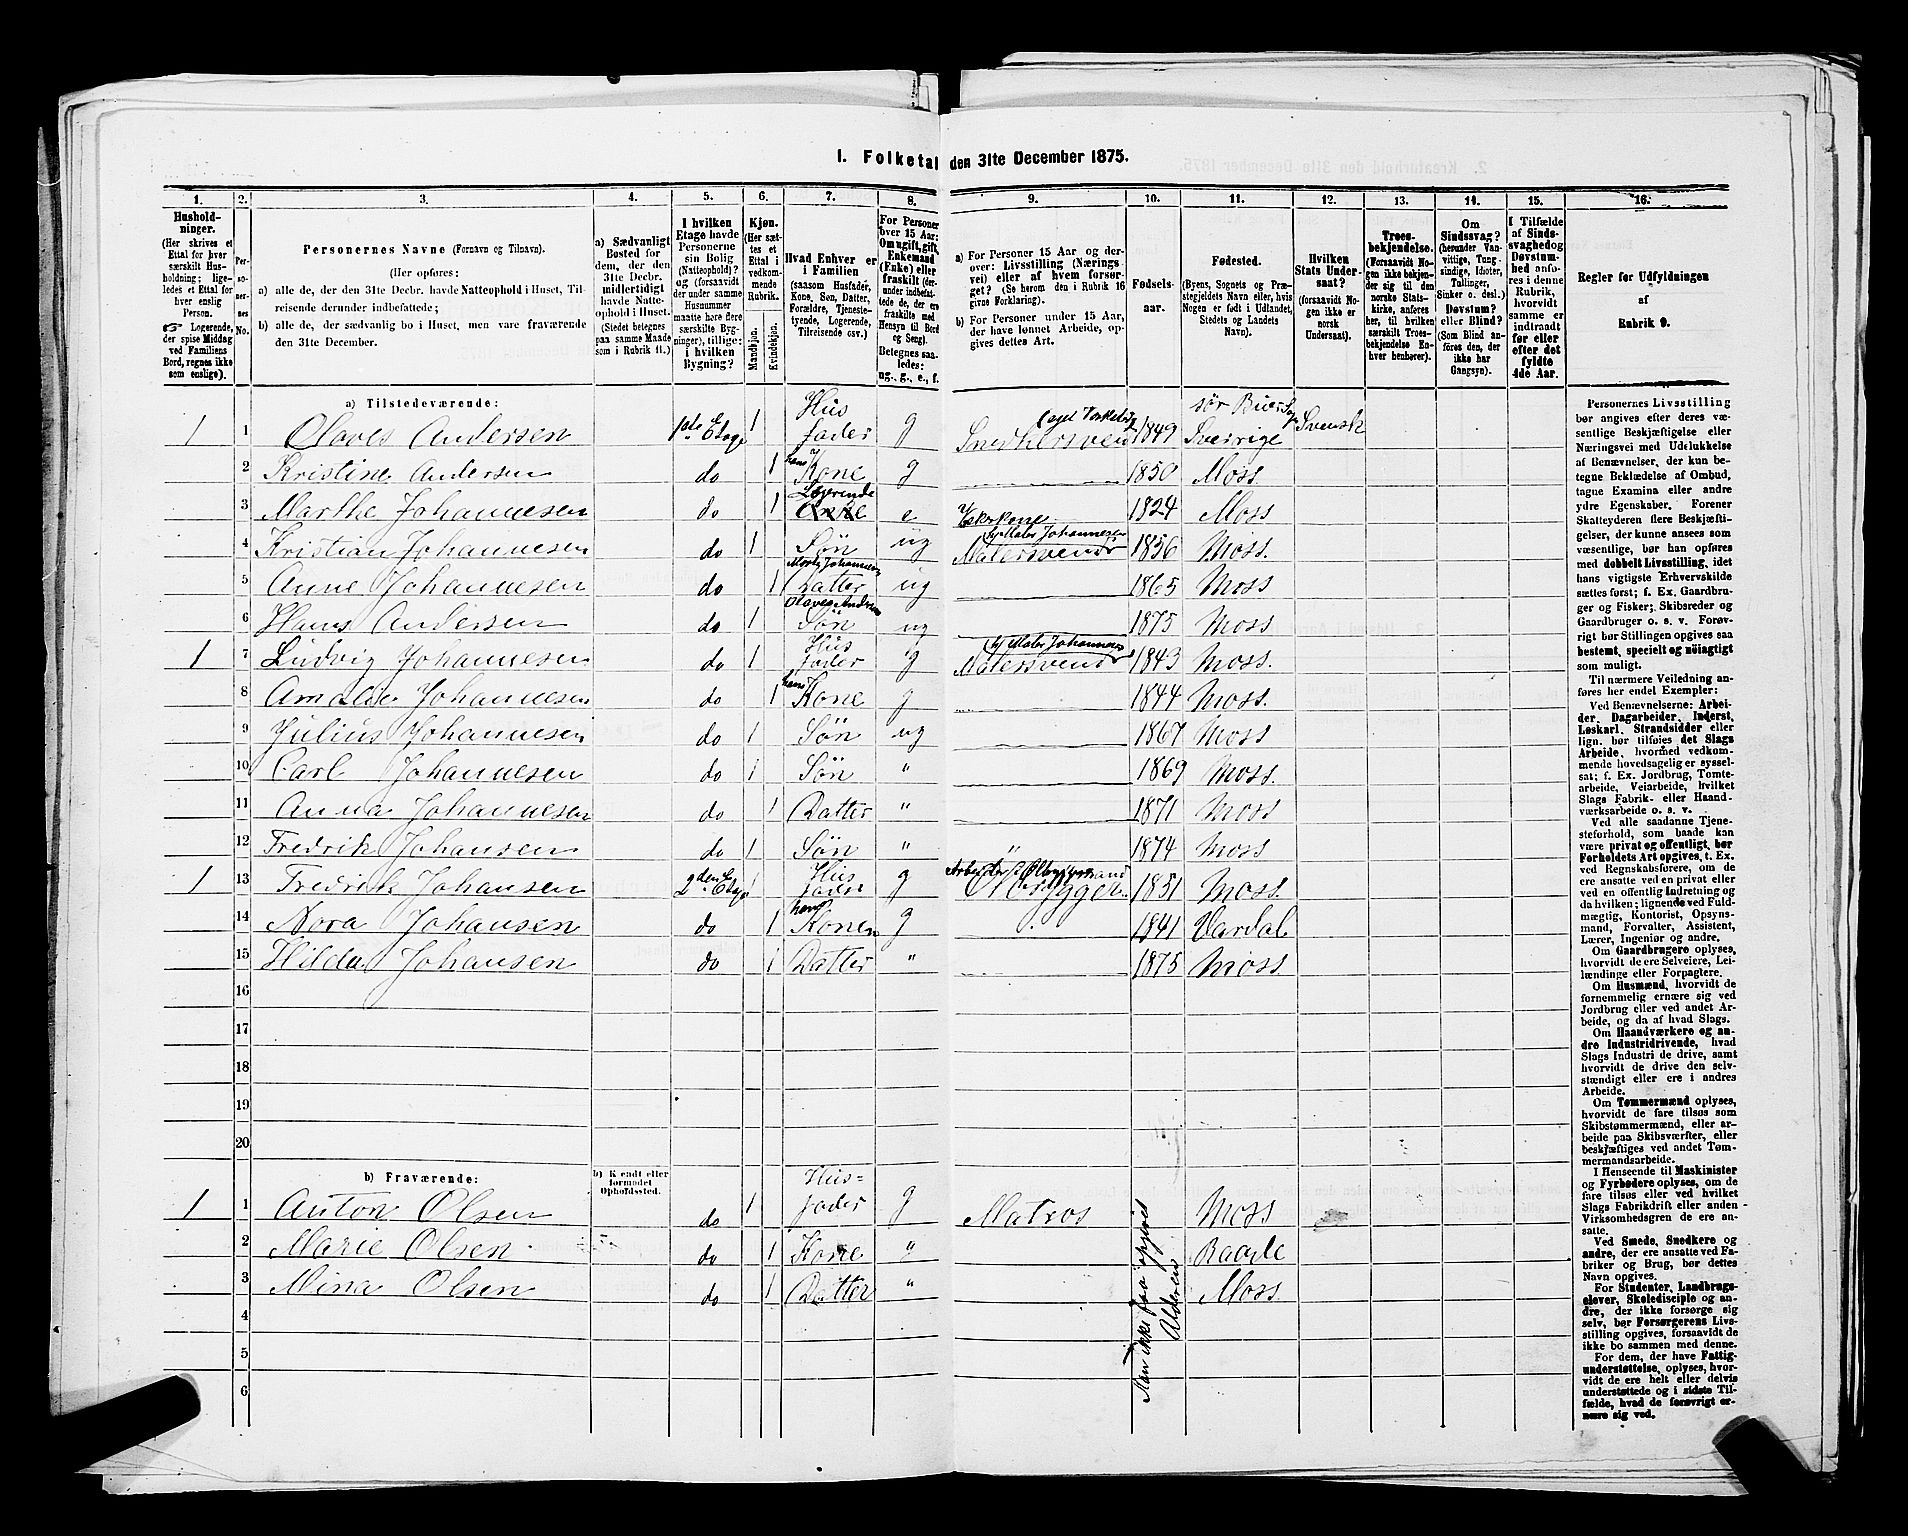 I. Folketal den 31te December 1875.
1. 2. 3. 4. 5. 6. 7. 8. 9. 10. 11. 12. 13. 14. 15. 16.
Husholdninger. (Her skrives et Ettal for hver særskilt Husholdning; ligeledes et Ettal for hver enslig Person. Logerende, der spise Middag ved Familiens Bord, regnes ikke som enslige).
Personernes No.
Personernes Navne (Fornavn og Tilnavn).
(Her opføres:
a) alle de, der den 31te Decbr. havde Natteophold i Huset, Tilreisende derunder indbefattede;
b) alle de, der sædvanlig bo i Huset, men vare fraværende den 31te December.
a) Sædvanligt Bosted for dem, der den 31te Decbr. midlertidigt havde Natteophold i Huset. (Stedet betegnes paa samme Maade som i Rubrik 11.)
I hvilken Etage havde Personerne sin Bolig (Natteophold)? og (forsaavidt der under samme Husnummer maatte høre flere særskilte Bygninger), tillige: i hvilken Bygning?
Kjøn. (Her sættes et Ettal i vedkommende Rubrik.
Mandkjøn. Kvindekjøn.
Hvad Enhver er i Familien (saasom Husfader, Kone, Søn, Datter, Forældre, Tjenestetyende, Logerende, Tilreisende osv.)
For Personer over 15 Aar: Om ugift, gift, Enkemand (Enke) eller fraskilt (derunder indbefattede de, der ere fraskilte med Hensyn til Bord og Seng). Betegnes saaledes: ug., g., e., f.
a) For Personer 15 Aar og derover: Livsstilling (Næringsvei) eller af hvem forsørget? (Se herom den i Rubrik 16 givne Forklaring).
b) For Personer under 15 Aar, der have lønnet Arbeide, opgives dettes Art.
Fødselsaar.
Fødested. (Byens, Sognets og Præstegjeldets Navn eller, hvis Nogen er født i Udlandet, Stedets og Landets Navn).
Hvilken Stats Undersaat? (forsaavidt Nogen ikke er norsk Undersaat).
Troesbekjendelse. (Forsaavidt Nogen ikke bekjender sig til den norske Statskirke, anføres her, til hvilken særskilt Troesbekjendelse Enhver henhører).
Om Sindssvag? (herunder Vanvittige, Tungsindige, Idioter, Tullinger, Sinker o. desl.) Døvstum? eller Blind? (Som Blind anføres den, der ikke har Gangsyn).
I Tilfælde af Sindssvaghed og Døvstumhed anføres i denne Rubrik, hvorvidt samme er indtraadt før eller efter det fyldte 4de Aar.
Regler for Udfyldningen af Rubrik 9.
a) Tilstedeværende:
1 1 Olaves Andersen 1ste Etage 1 Husfader g Snedkersvend 1849 Sverrige Svensk
2 Kristine Andersen do 1 hans Kone g 1850 Moss
3 Marthe Johannesen do 1 Logerende Enke e 1824 Moss
4 Kristian Johannesen do 1 Søn ug Malersvend hos Maler Johannesen 1856 Moss.
5 Anne Johannesen do 1 Marthe Johannesen Datter ug 1865 Moss
6 Hans Andersen do 1 Olaves Andersen Søn ug 1875 Moss
1 7 Ludvig Johannesen do 1 Husfader g Malersvend hos Maler Johannesen 1843 Moss.
8 Amalie Johannesen do 1 hans Kone g 1844 Moss.
9 Julius Johannesen do 1 Søn ug 1867 Moss
10 Carl Johannesen do 1 Søn " 1869 Moss.
11 Anna Johannesen do 1 Datter " 1871 Moss
12 Fredrik Johansen do 1 Søn " " 1874 Moss
1 13 Fredrik Johansen 2den Etage 1 Husfader g 1851 Moss.
14 Nora Johansen do 1 hans Konen g 1841 Vardal
15 Hilda Johansen do 1 Datter " 1875 Moss
16
17
18
19
20
b) Fraværende:
b) Kjendt eller formodet Opholdssted.
1 1 Anton Olsen do 1 Husfader g Matros Moss
2 Marie Olsen do 1 Kone " Raade
3 Mina Olsen do 1 Datter " Moss
4
5
6
Kan ikke faa opgivet Alderen
Personernes Livsstilling
bør angives efter deres væ-
sentlige Beskjæftigelse eller
Næringsvei med Udelukkelse
af Benævnelser, der kun be-
tegne Beklædelse af Ombud,
tagne Examina eller andre
ydre Egenskaber. Forener
Skatteyderen flere Beskjæfti-
gelser, der kunne ansees som
væsentlige, bør han opføres
med dobbelt Livsstilling, idet
hans vigtigste Erhvervskilde
sættes først; f. Ex. Gaardbru-
ger og Fisker; Skibsreder og
Gaardbruger o. s. v. Forøv-
rigt bør Stillingen opgives saa
bestemt, specielt og nøiagtigt
som muligt.
Til nærmere Veiledning an-
føres her endel Exempler:
Ved Benævnelserne: Arbei-
der, Dagarbeider, Inderst,
Løskarl, Strandsidder eller
lign. bør tilføies det Slags
Arbeide, hvormed vedkom-
mende hovedsagelig er syssel-
sat; f. Ex. Jordbrug, Tomte-
arbeide, Veiarbeide, hvilket
Slags Fabrik- eller Haand-
værksarbeide o. s. v.
Ved alle saadanne Tjene-
steforhold, som baade kan
være privat og offentligt, bør
Forholdets Art opgives, t. Ex.
ved Regnskabsførere, om de
ere ansatte ved en privat eller
ved en offentlig Indretning og
da hvilken; lignende ved Fuld-
mægtig, Kontorist, Opsyns-
mand, Forvalter, Assistent,
Lærer, Ingeniør og andre.
Om Gaardbrugere oplyses,
hvorvidt de ere Selveiere, Lei-
lændinge eller Forpagtere.
Om Husmænd, hvorvidt de
fornemmelig ernære sig ved
Jordbrug eller ved andet Ar-
beide, og da af hvad Slags.
Om Haandværkere og an-
dre Industridrivende, hvad
Slags Industri de drive, samt
hvorvidt de drive den selv-
stændigt eller ere i andres
Arbeide.
Om Tømmermænd oplyses,
hvorvidt de fare tilsøs som
Skibstømmermænd, eller ar-
beide paa Skibsværfter, eller
beskjæftiges ved andet Tøm-
mermandsarbeide.
I Henseende til Maskinister
og Fyrbødere oplyses, om de
fare tilsøs eller ved hvilket
Slags Fabrikdrift eller anden
Virksomhedsgren de ere an-
satte.
Ved Smede, Snedkere og
andre, der ere ansatte ved Fa-
briker og Brug, bør dettes
Navn opgives.
For Studenter, Landbrugs-
elever, Skoledisciple og an-
dre, der ikke forsørge sig
selv, bør Forsørgerens Livs-
stilling opgives, forsaavidt de
ikke bo sammen med denne.
For dem, der have Fattig-
understøttelse, oplyses, hvor-
vidt de ere helt eller delvis
understøttede og i sidste Til-
fælde, hvad de forøvrigt er-
nære sig ved.